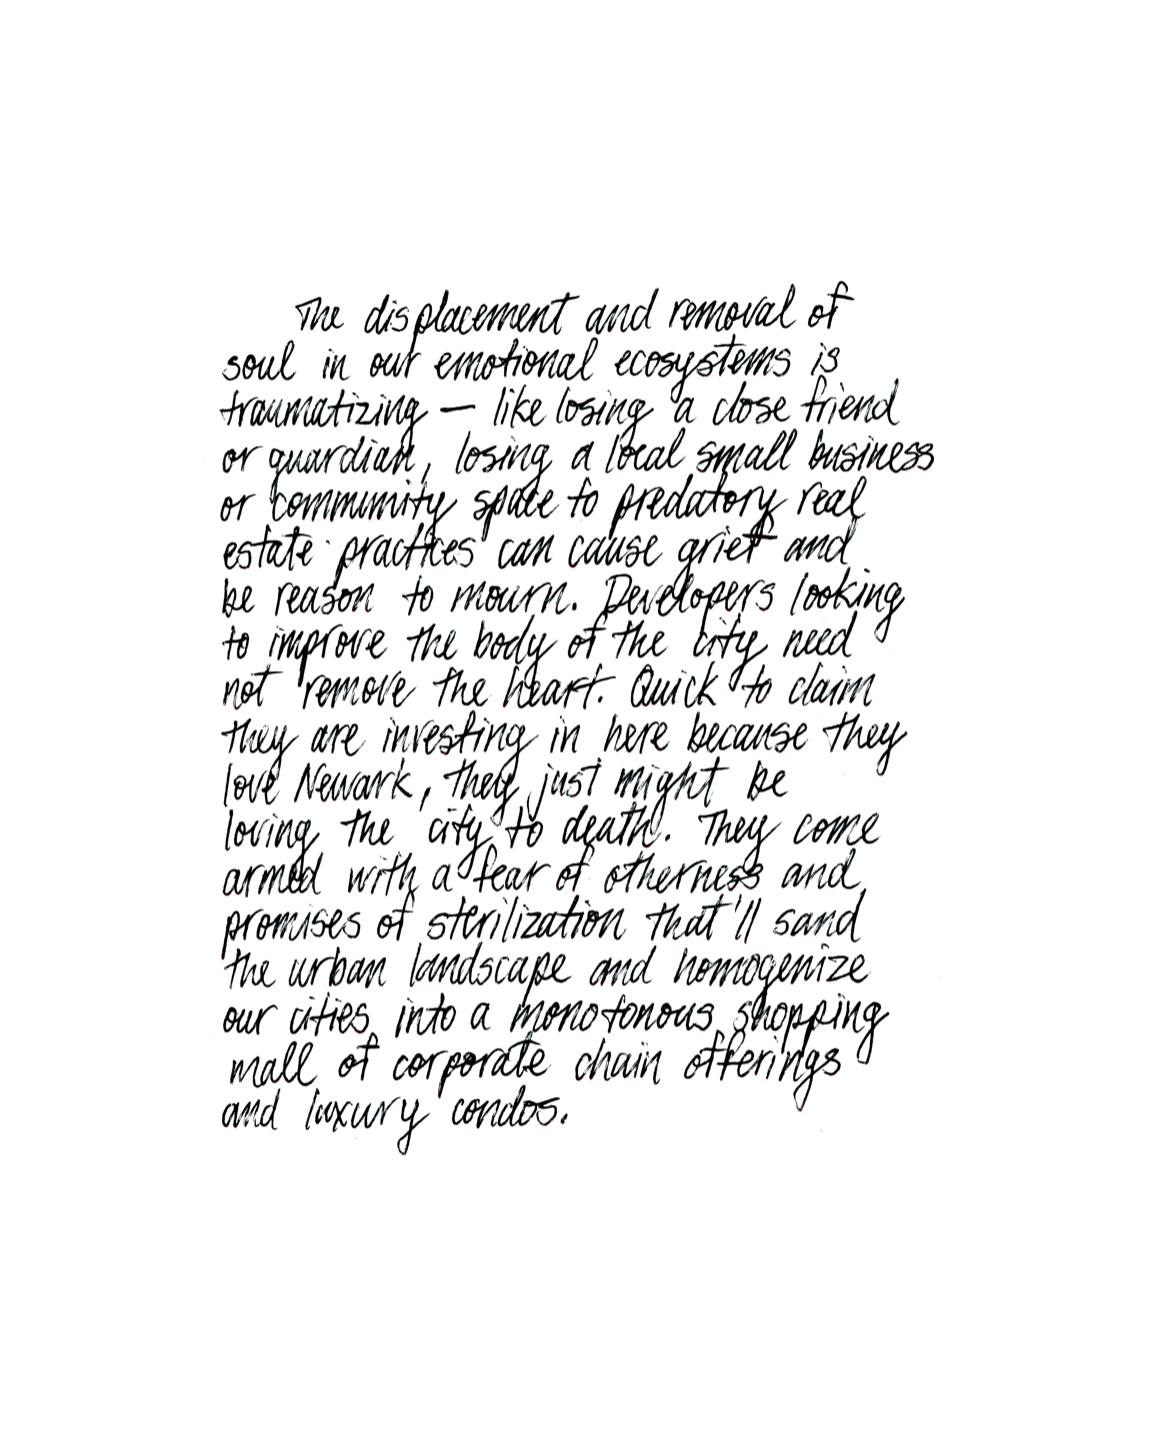 The displacement and removal of
soul in our emotional ecosystems is
traumatizing — like losing a close friend
or guardian, losing a local small business
or community space to predatory real
estate practices can cause grief and
be reason to mourn. Developers looking
to improve the body of the city need
not remove the heart. Quick to claim
they are investing in here because they
love Newark, they just might be
loving the city to death. They come
armed with a fear of otherness and
promises of sterilization that'll sand
the urban landscape and homogenize
our cities into a monotonous shopping
mall of corporate chain offerings
and luxury condos.